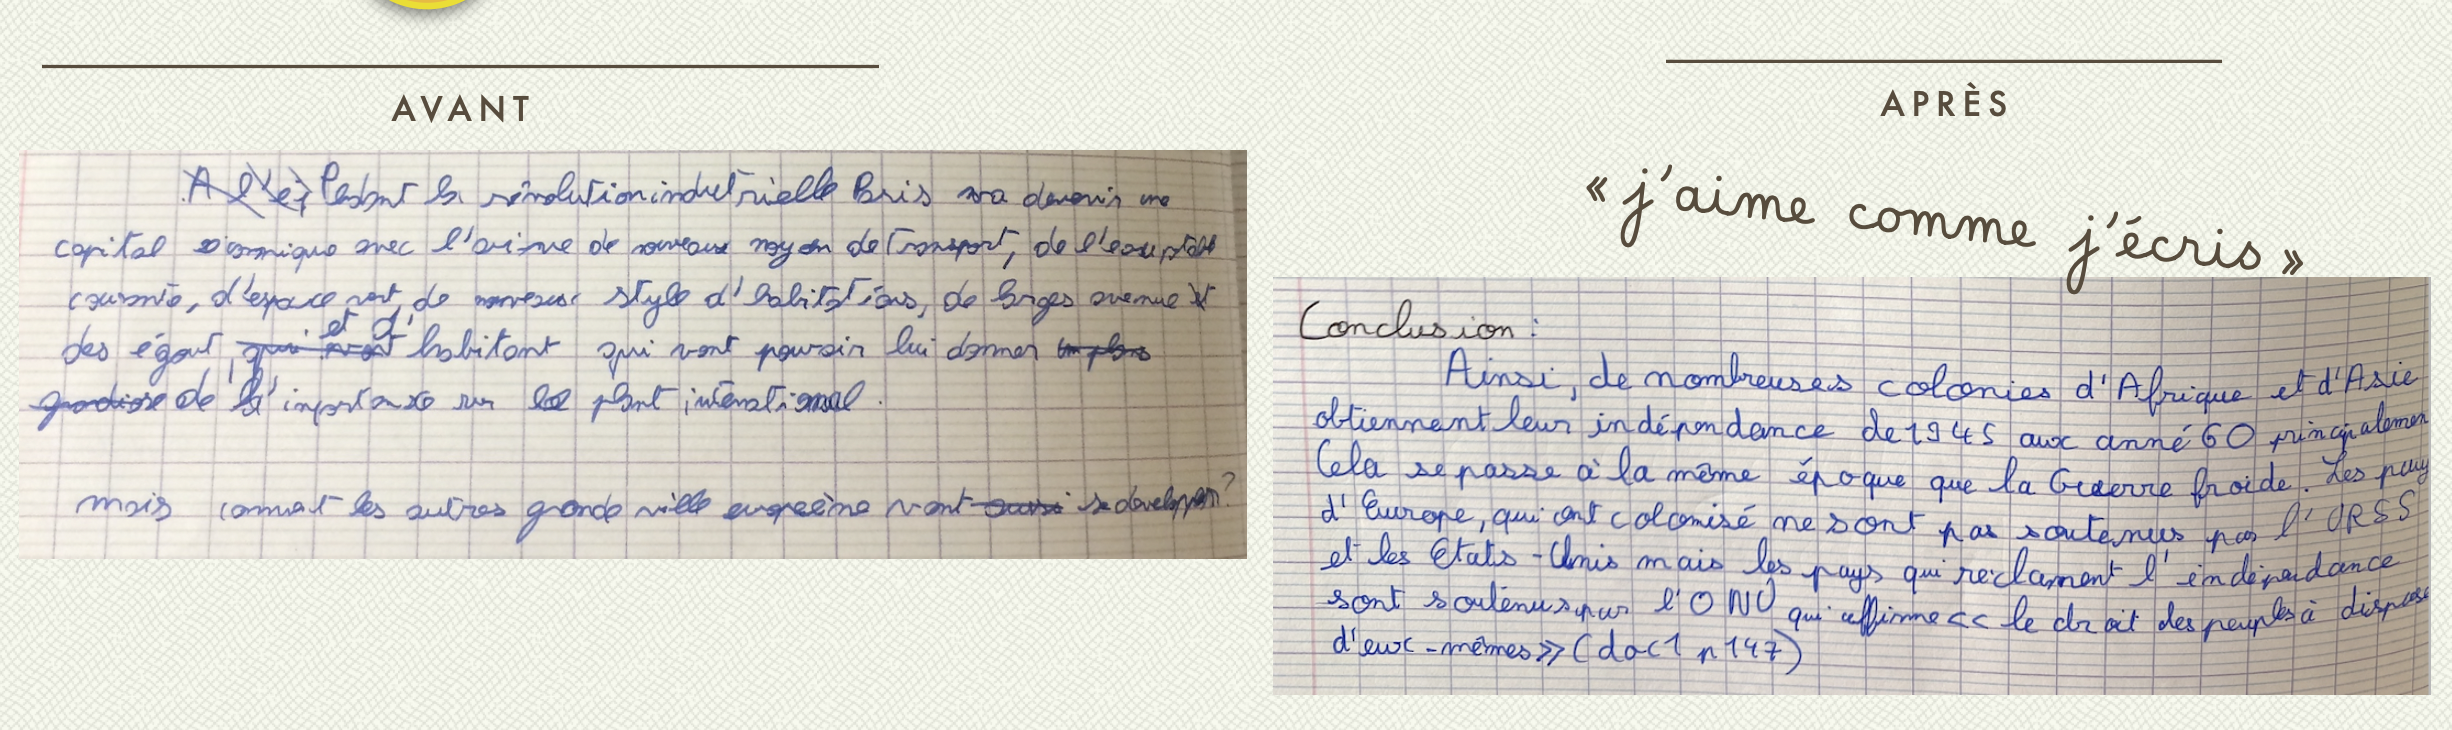 AVANT
A l'è Pendant la révolution industrielle Paris va devenir une
capital économique avec l'arivve de nouveaux moyen de transport, de l'eau potable
courante, d'espace vert, de nouveaux style d'habitations, de larges avenue et
des égout, qui vont et d'habitant qui vont pouvoir lui donner un plus
grandiose de l'importance sur le plant international.
mais comment les autres grande ville européène vont aussi se developper?
APRÈS
« j'aime comme j'écris »
Conclusion :
Ainsi, de nombreuses colonies d'Afrique et d'Asie
obtiennent leur indépendance de 1945 aux anné 60 principalemen
Cela se passe à la même époque que la Guerre froide. Les pays
d'Europe, qui ont colonisé ne sont pas soutenus par l'URSS
et les Etats-Unis mais les pays qui réclament l'indépendance
sont soutenus par l'ONU qui affirme << le droit des peuples à dispose
d'eux-mêmes >> (doc 1 p 147)